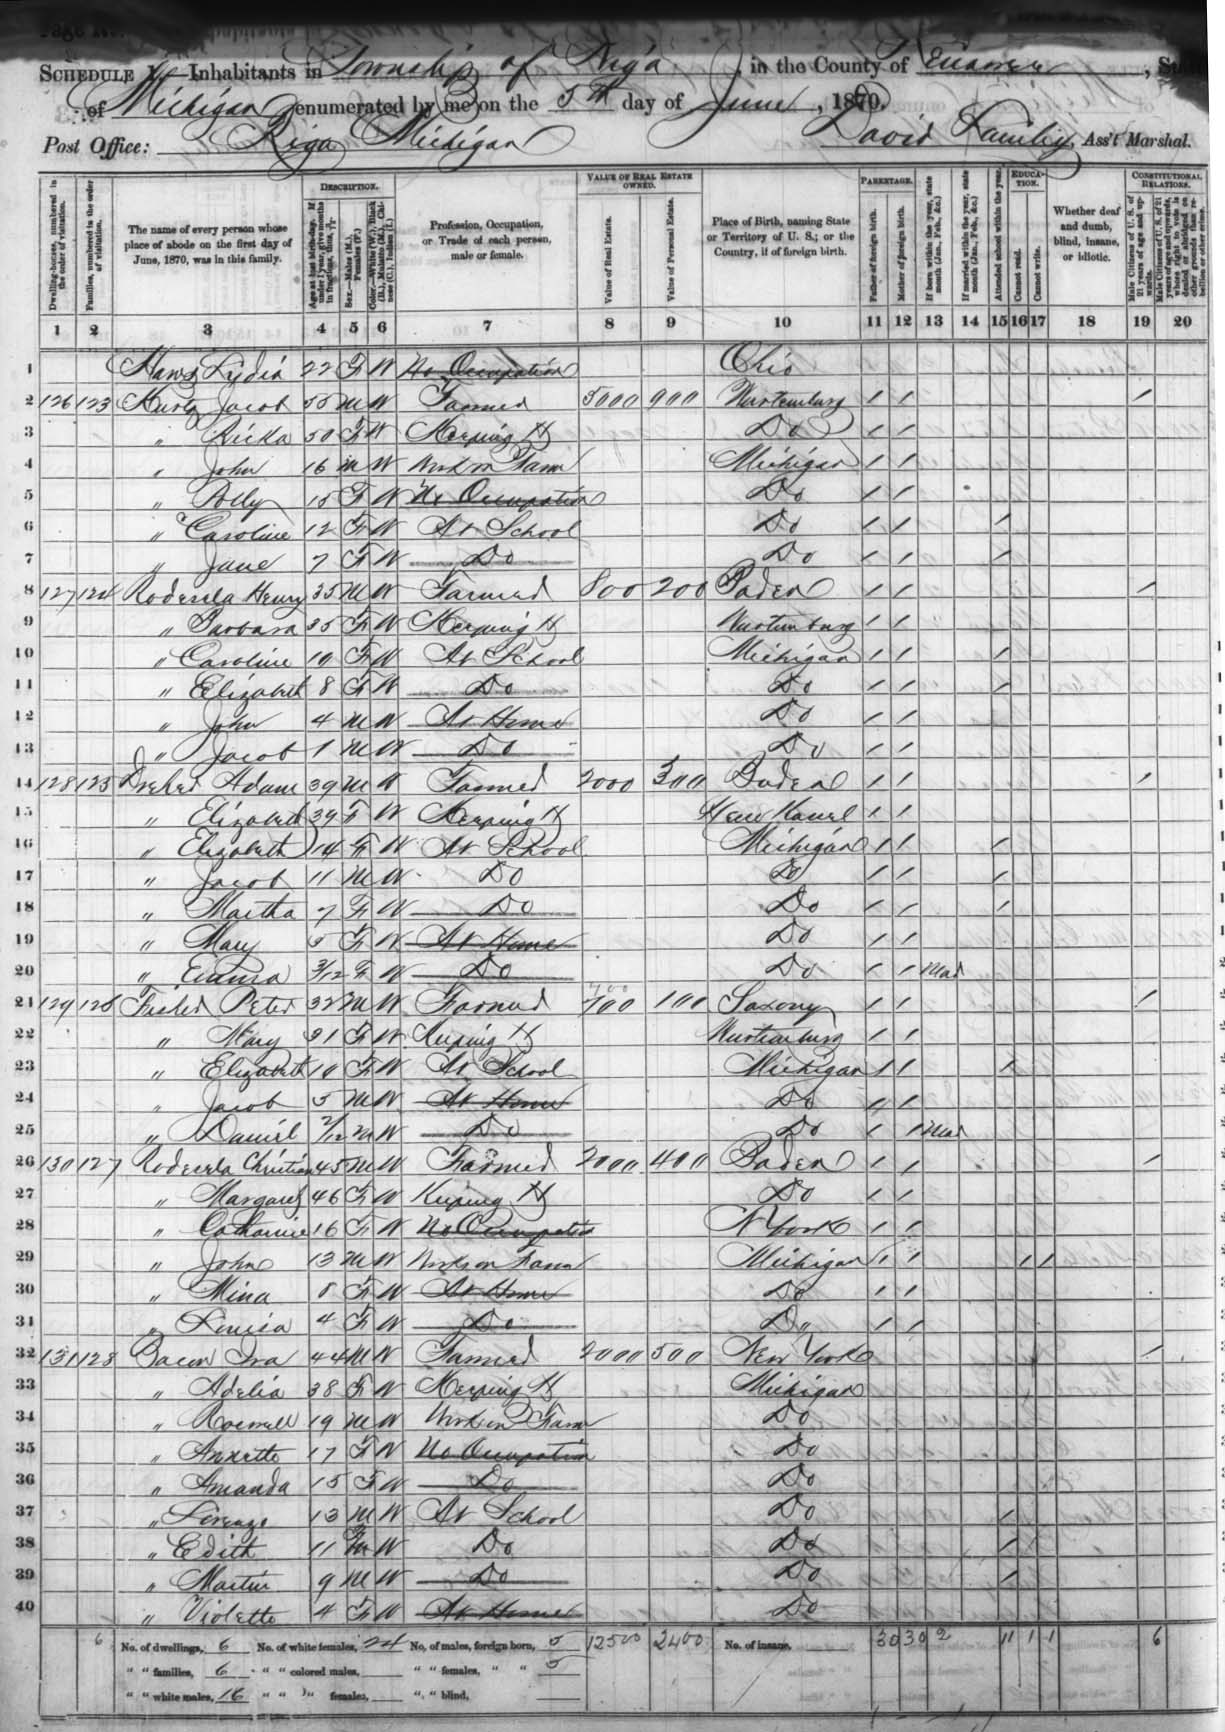 SCHEDULE 1.—Inhabitants in Township of Riga, in the County of Lenawee, State
of Michigan enumerated by me on the 5th day of June, 1870.
Post Office: Riga Michigan David, Ass't Marshal.
Dwelling-houses, numbered in the order of visitation.
Families, numbered in the order of visitation.
The name of every person whose place of abode on the first day of June, 1870, was in this family.
DESCRIPTION.
Age at last birth-day. If under 1 year, give months in fractions, thus, 3/12
Sex.—Males (M.), Females (F.)
Color.—White (W.), Black (B.), Mulatto (M.), Chinese (C.), Indian (I.)
Profession, Occupation, or Trade of each person, male or female.
VALUE OF REAL ESTATE OWNED.
Value of Real Estate.
Value of Personal Estate.
Place of Birth, naming State or Territory of U. S.; or the Country, if of foreign birth.
PARENTAGE.
Father of foreign birth.
Mother of foreign birth.
If born within the year, state month (Jan., Feb., &c.)
If married within the year, state month (Jan., Feb., &c.)
Attended school within the year.
EDUCATION.
Cannot read.
Cannot write.
Whether deaf and dumb, blind, insane, or idiotic.
CONSTITUTIONAL RELATIONS.
Male Citizens of U. S. of 21 years of age and upwards.
Male Citizens of U. S. of 21 years of age and upwards, whose right to vote is denied or abridged on other grounds than rebellion or other crime.
1 2 3 4 5 6 7 8 9 10 11 12 13 14 15 16 17 18 19 20
1 Lydia 22 F W No Occupation Ohio
2 126 123 Kurtz Jacob 55 M W Farmer 5000 900 Wurtemburg / / /
3 " Ricka 50 F W Keeping H Do / /
4 " John 16 M W Work on Farm Michigan / /
5 " Polly 15 F W No Occupation Do / /
6 " Caroline 12 F W At School Do / / /
7 " Jane 7 F W Do Do / / /
8 127 124 Rodesela Henry 35 M W Farmer 800 200 Baden / / /
9 " Barbara 35 F W Keeping H Wurtemburg / /
10 " Caroline 10 F W At School Michigan / / /
11 " Elizabeth 8 F W Do Do / / /
12 " John 4 M W At Home Do / /
13 " Jacob 1 M W Do Do / /
14 128 125 Dreher Adam 39 M W Farmer 2000 300 Baden / / /
15 " Elizabeth 39 F W Keeping H / /
16 " Elizabeth 14 F W At School Michigan / / /
17 " Jacob 11 M W Do Do / / /
18 " Martha 7 F W Do Do / / /
19 " Mary 5 F W At Home Do / /
20 " Emma 3/12 F W Do Do / / Mar
21 129 126 Fisher Peter 32 M W Farmer 700 700 100 Saxony / / /
22 " Mary 31 F W Keeping H Wurtemburg / /
23 " Elizabeth 10 F W At School Michigan / / /
24 " Jacob 5 M W At Home Do / /
25 " Daniel 2/12 M W Do Do / / Mar
26 130 127 Rodesela Christian 45 M W Farmer 2000 400 Baden / / /
27 " Margaret 46 F W Keeping H Do / /
28 " Catharine 16 F W No Occupation N York / /
29 " John 13 M W Work on Farm Michigan / / / /
30 " Mina 8 F W At Home Do / /
31 " Louisa 4 F W Do Do / /
32 131 128 Bacon Ira 44 M W Farmer 2000 500 New York /
33 " Adelia 38 F W Keeping H Michigan
34 " 19 M W Work on Farm Do
35 " Annette 17 F W No Occupation Do
36 " Amanda 15 F W Do Do
37 " Lorenzo 13 M W At School Do /
38 " Edith 11 F W Do Do /
39 " Martin 9 M W Do Do /
40 " Violette 4 F W At Home Do
6 No. of dwellings, 6 No. of white females, 24 No. of males, foreign born, 5 12500 2400 No. of insane, 30 30 2 11 1 1 6
" " families, 6 " " colored males, " " females, " " 5
" " white males, 16 " " " females, " " blind,